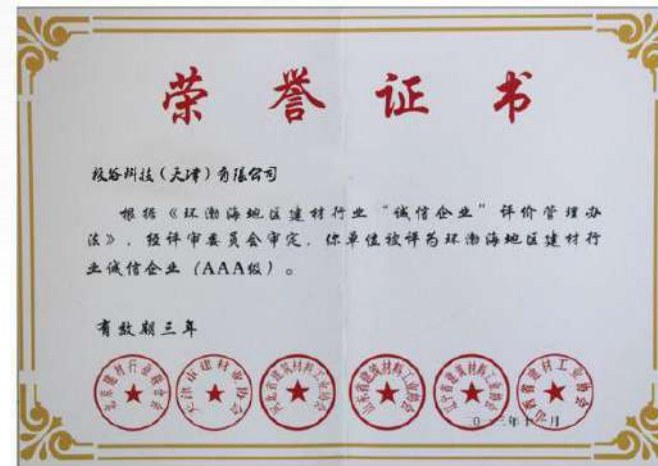 荣誉证书
极谷科技（天津）有限公司
根据《环渤海地区建材行业“诚信企业”评价管理办
法》，经评审委员会审定，你单位被评为环渤海地区建材行
业诚信企业（AAA级）。
有效期三年
北京建材行业联合会
天津市建材业协会
河北省建筑材料工业协会
山东省建筑材料工业协会
辽宁省建筑材料工业协会
山西省建材工业协会